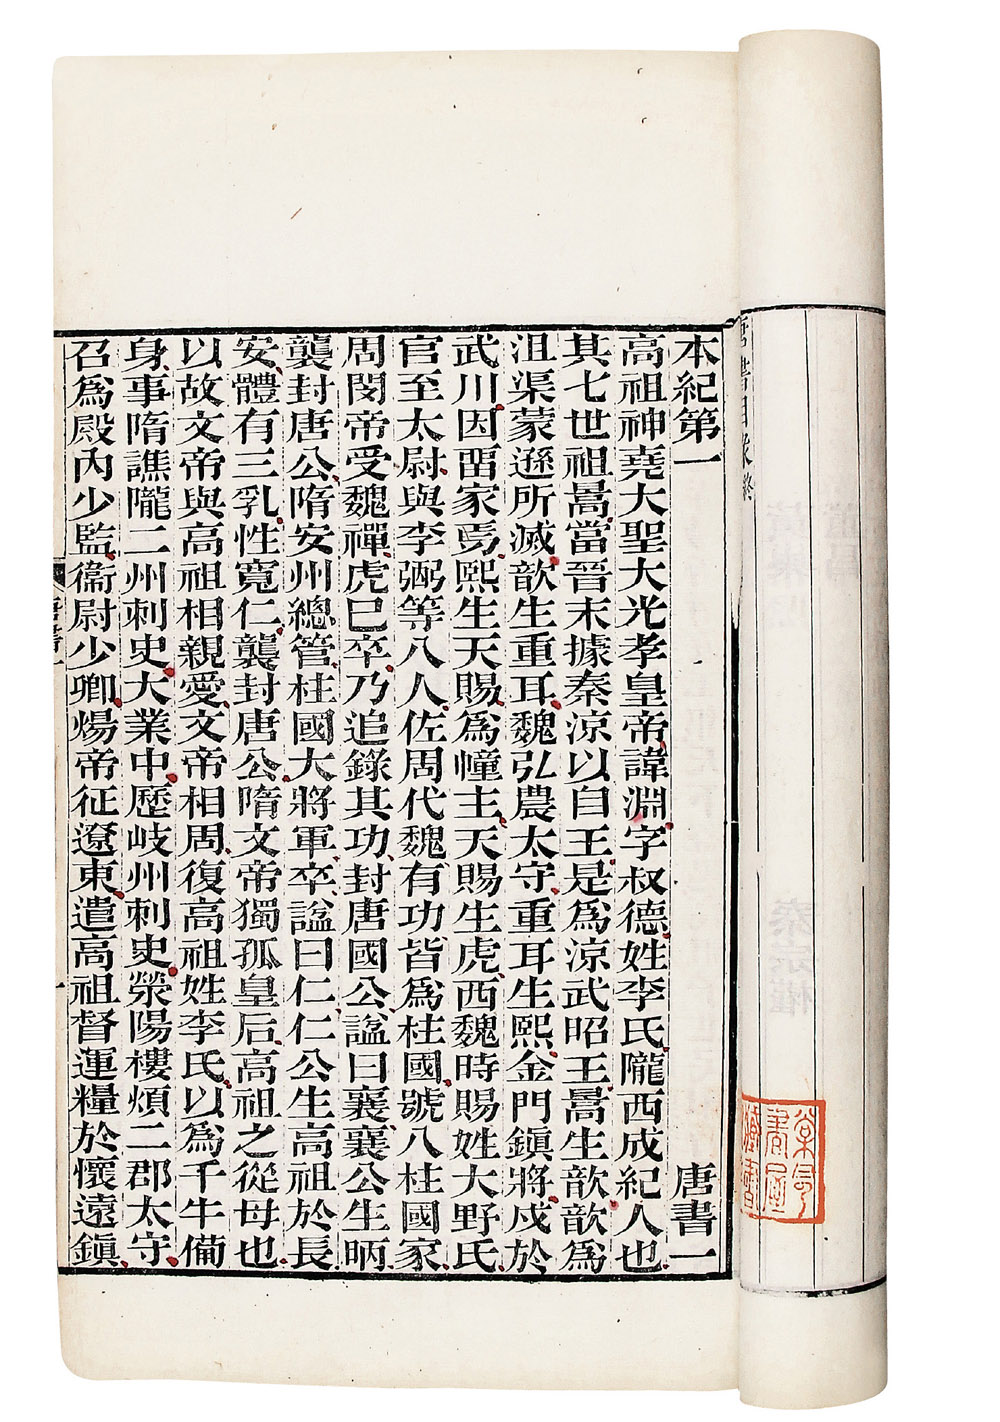 本紀第一 唐書一
高祖神堯大聖大光孝皇帝諱淵字叔德姓李氏隴西成紀人也
其七世祖暠當晉末據秦涼以自王是爲涼武昭王暠生歆歆爲
沮渠蒙遜所滅歆生重耳魏弘農太守重耳生熙金門鎮將戍於
武川因畱家焉熙生天賜爲幢主天賜生虎西魏時賜姓大野氏
官至太尉與李弼等八人佐周代魏有功皆爲柱國號八柱國家
周閔帝受魏禪虎已卒乃追錄其功封唐國公謚曰襄襄公生昞
襲封唐公隋安州總管柱國大將軍卒謚曰仁仁公生高祖於長
安體有三乳性寬仁襲封唐公隋文帝獨孤皇后高祖之從母也
以故文帝與高祖相親愛文帝相周復高祖姓李氏以爲千牛備
身事隋譙隴二州刺史大業中歷岐州刺史滎陽樓煩二郡太守
召爲殿內少監衞尉少卿煬帝征遼東遣高祖督運糧於懷遠鎮
唐書一
一
唐書目錄終